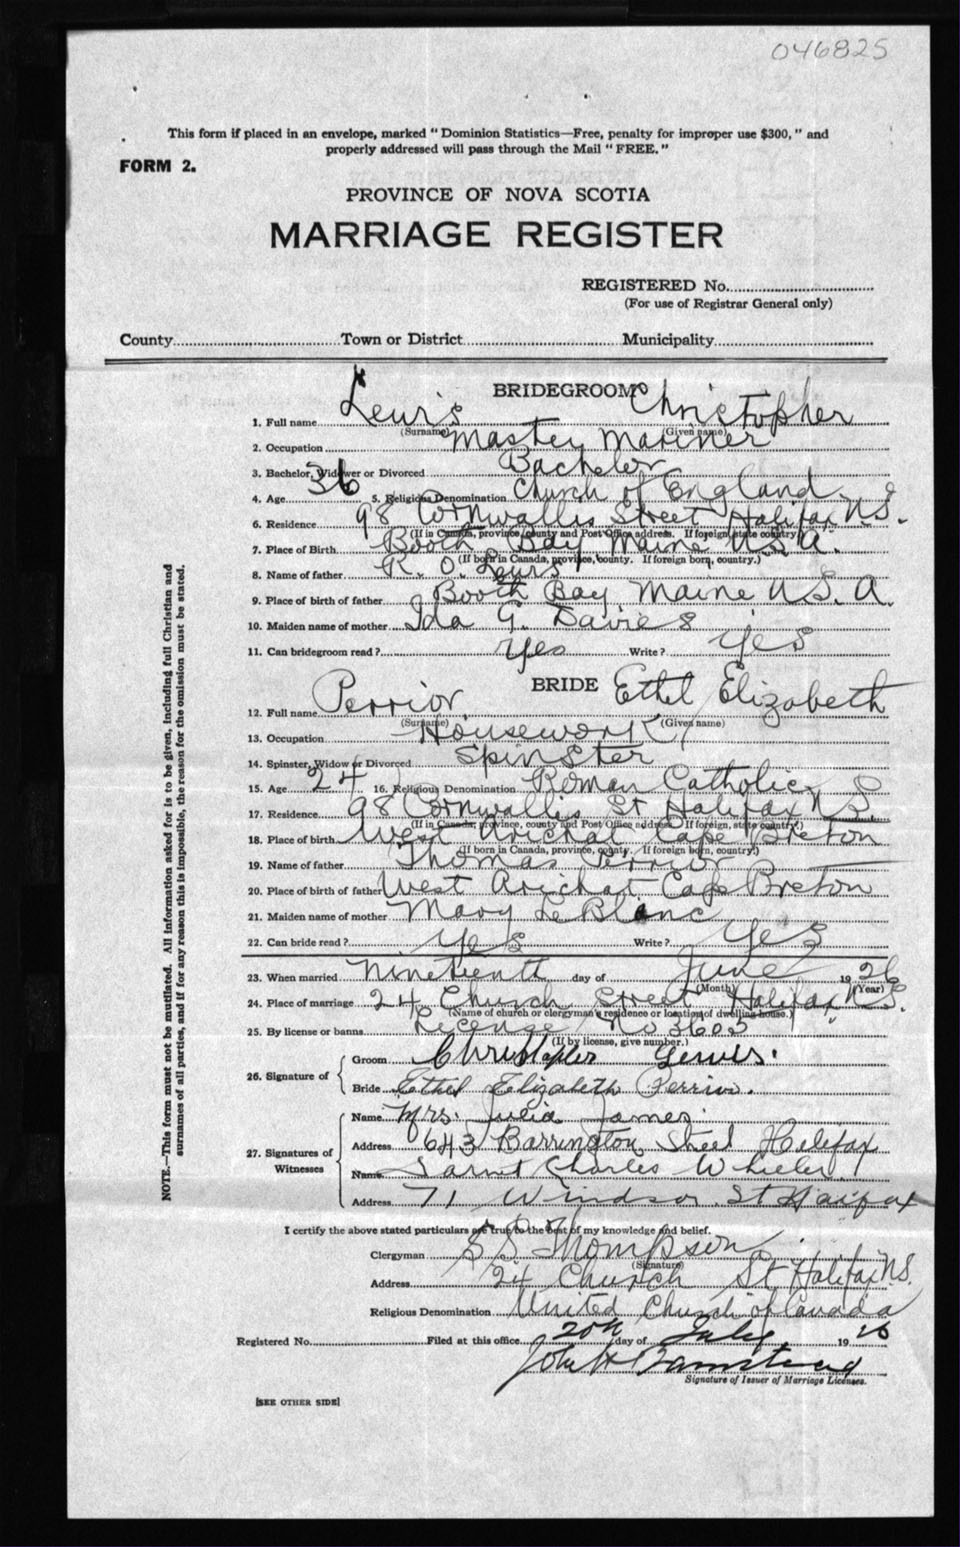 046825
This form if placed in an envelope, marked " Dominion Statistics—Free, penalty for improper use $300, " and
properly addressed will pass through the Mail " FREE. "
FORM 2.
PROVINCE OF NOVA SCOTIA
MARRIAGE REGISTER
REGISTERED No.
(For use of Registrar General only)
County Town or District Municipality
BRIDEGROOM
1. Full name Lewis Christopher
(Surname) (Given name)
2. Occupation Master Mariner
3. Bachelor, Widower or Divorced Bachelor
4. Age 36 5. Religious Denomination Church of England
6. Residence 98 Cornwallis Street Halifax N.S.
(If in Canada, province, county and Post Office address. If foreign, state country)
7. Place of Birth Booth Bay Maine U.S.A.
(If born in Canada, province, county. If foreign born, country.)
8. Name of father R. O. Lewis
9. Place of birth of father Booth Bay Maine U.S.A.
10. Maiden name of mother Ida G. Davies
11. Can bridegroom read? Yes Write? Yes
BRIDE
12. Full name Perrior Ethel Elizabeth
(Surname) (Given name)
13. Occupation Housework
14. Spinster, Widow or Divorced Spinster
15. Age 24 16. Religious Denomination Roman Catholic
17. Residence 98 Cornwallis St Halifax N.S.
(If in Canada, province, county and Post Office address. If foreign, state country.)
18. Place of birth West Arichat Cape Breton
(If born in Canada, province, county. If foreign born, country.)
19. Name of father Thomas Perrior
20. Place of birth of father West Arichat Cape Breton
21. Maiden name of mother Mary LeBlanc
22. Can bride read? Yes Write? Yes
23. When married Nineteenth day of June 1926
(Month) (Year)
24. Place of marriage 24 Church Street Halifax N.S.
(Name of church or clergyman's residence or location of dwelling-house.)
25. By license or banns License No 3605
(If by license, give number.)
26. Signature of
Groom Christopher Lewis.
Bride Ethel Elizabeth Perrior.
27. Signatures of Witnesses
Name Mrs. Julia James.
Address 643 Barrington Street Halifax
Name Charles Wheeler
Address 71 Windsor St Haifax
I certify the above stated particulars are true to the best of my knowledge and belief.
Clergyman S S Thompson
(Signature)
Address 24 Church St Halifax N.S.
Religious Denomination United Church of Canada
Registered No. Filed at this office 20th day of July 1926
John H
Signature of Issuer of Marriage Licenses.
[SEE OTHER SIDE]
NOTE.—This form must not be mutilated. All information asked for is to be given, including full Christian and
surnames of all parties, and if for any reason this is impossible, the reason for the omission must be stated.